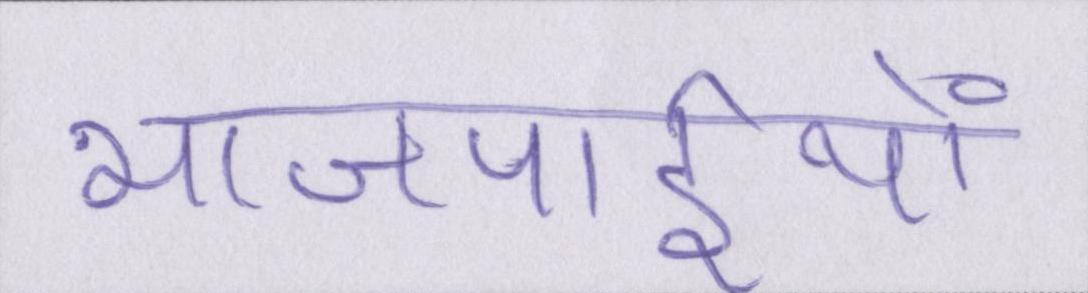 भाजपाईयों